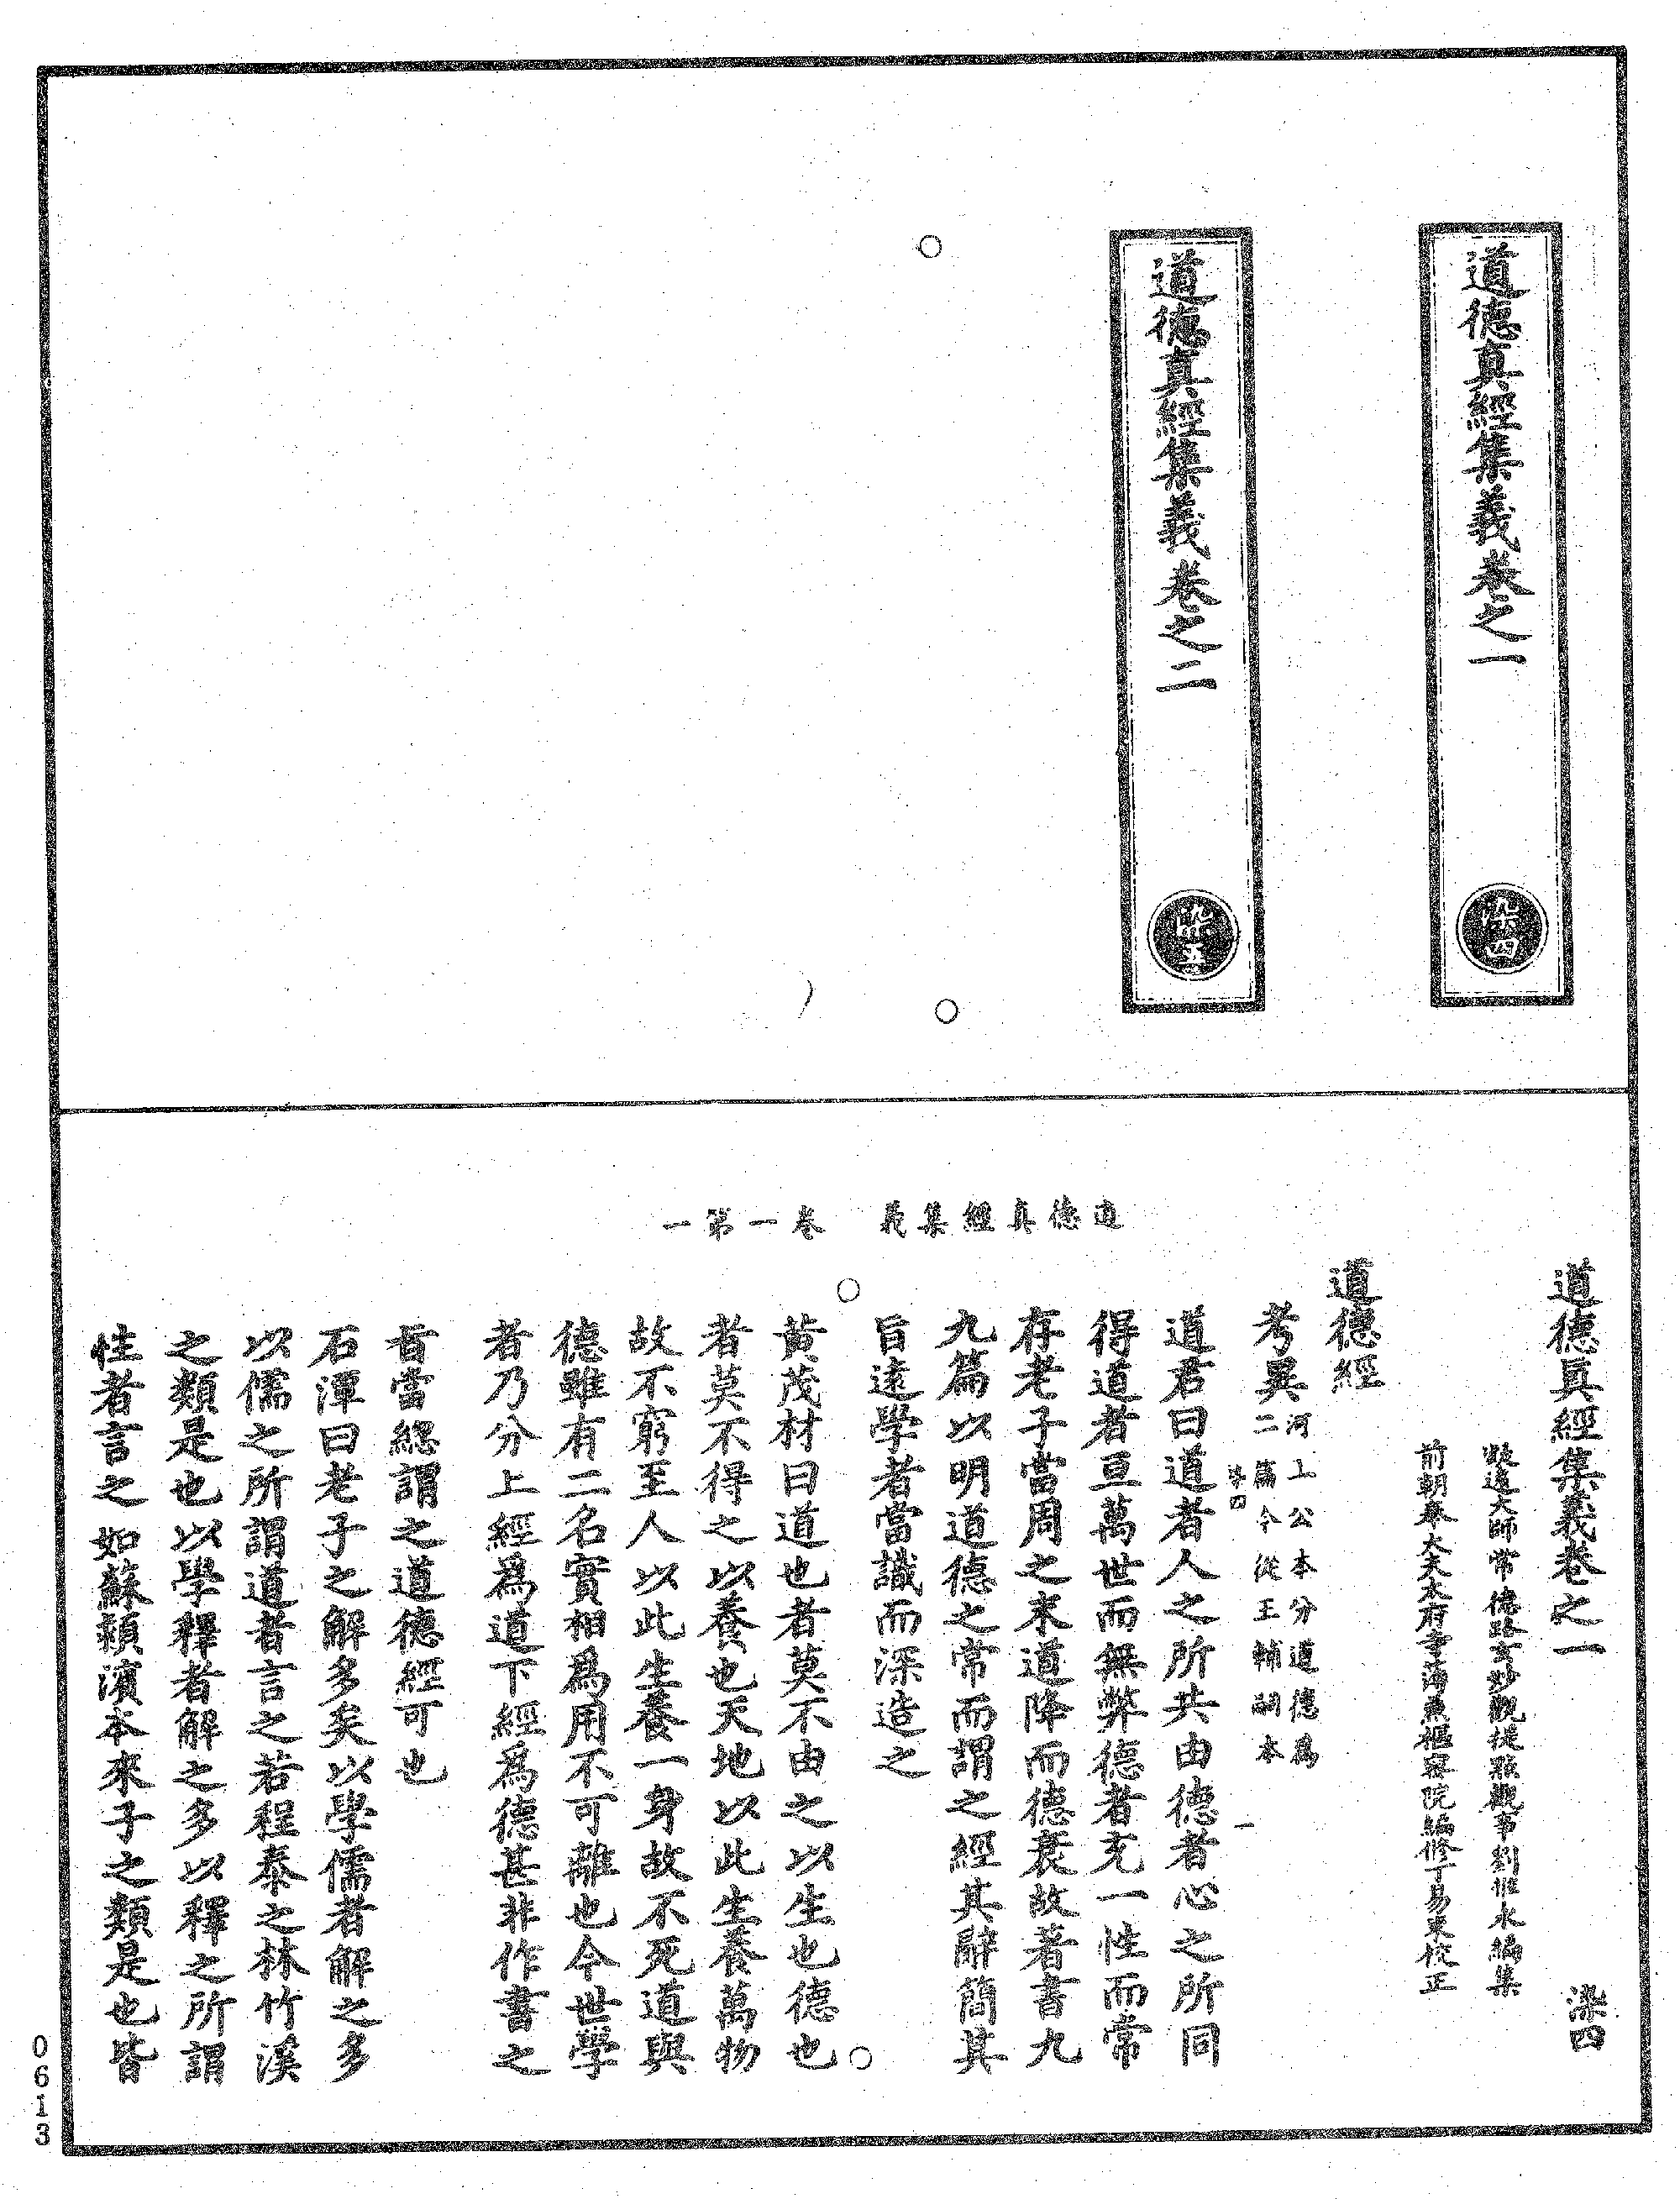 道德真經集義卷之一
染四
道德真經集義卷之二
染五
道德真經集義　卷一第一
道德真經集義卷之一　染四
凝遠大師常德路玄妙觀提點觀事劉惟永編集
前朝奉大夫太府寺簿兼樞密院編修丁易東校正
道德經
考異河上公本分道德為
二篇今從王輔嗣本
染四　一
道君曰道者人之所共由德者心之所同
得道者亘萬世而無弊德者充一性而常
存老子當周之末道降而德衰故著書九
九篇以明道德之常而謂之經其辭簡其
旨遠學者當識而深造之
黄茂材曰道也者莫不由之以生也德也
者莫不得之以養也天地以此生養萬物
故不窮至人以此生養一身故不死道與
德雖有二名實相爲用不可離也今世學
者乃分上經爲道下經爲德甚非作書之
旨當總謂之道德經可也
石潭曰老子之解多矣以學儒者解之多
以儒之所謂道者言之若程泰之林竹溪
之類是也以學釋者解之多以釋之所謂
性者言之如蘇頴濱本來子之類是也皆
0613